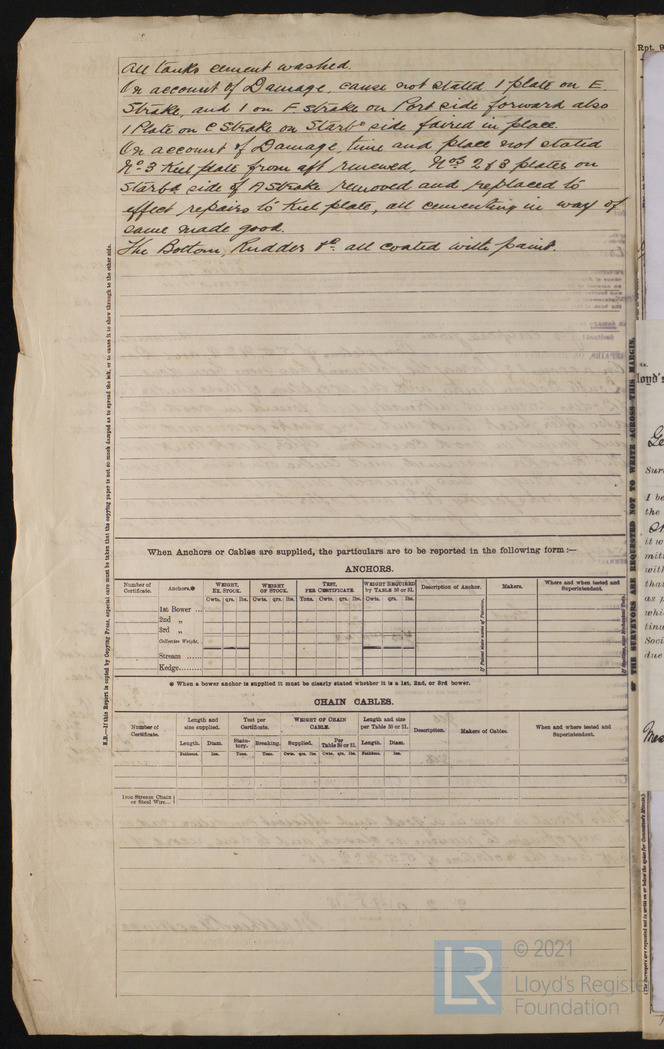 All tanks cement washed.
On account of Damage, cause not stated 1 plate on E.
Strake, and 1 on F strake on Port side forward also
1 Plate on C Strake on Starbd side faired in place.
On account of Damage, time and place not stated
No 3 Keel plate from aft renewed, Nos 2 & 3 plates on
Starbd side of A Strake removed and replaced to
effect repairs to Keel plate, all cementing in way of
same made good.
The Bottom, Rudder &c. all coated with paint.
When Anchors or Cables are supplied, the particulars are to be reported in the following form :—
ANCHORS.
Number of Certificate. Anchors.* WEIGHT, EX. STOCK. WEIGHT OF STOCK. TEST, PER CERTIFICATE. WEIGHT REQUIRED by TABLE 30 or 31. Description of Anchor. Makers. Where and when tested and Superintendent.
Cwts. qrs. lbs. Cwts. qrs. lbs. Tons. Cwts. qrs. lbs. Cwts. qrs. lbs.
1st Bower ...
2nd „
3rd „
Collective Weight.
Stream ......
Kedge.........
* When a bower anchor is supplied it must be clearly stated whether it is a 1st, 2nd, or 3rd bower.
CHAIN CABLES.
Number of Certificate. Length and size supplied. Test per Certificate. WEIGHT OF CHAIN CABLE. Length and size per Table 30 or 31. Description. Makers of Cables. When and where tested and Superintendent.
Length. Diam. Statutory. Breaking. Supplied. Per Table 30 or 31. Length. Diam.
Fathoms. Ins. Tons. Tons. Cwts. qrs. lbs. Cwts. qrs. lbs. Fathoms. Ins.
Iron Stream Chain or Steel Wire...
N.B.—If this Report is copied by Copying Press, especial care must be taken that the copying paper is not so much damped as to spread the ink, or to cause it to show through to the other side.
THE SURVEYORS ARE REQUESTED NOT TO WRITE ACROSS THIS MARGIN.
Rpt. 9
loyd's
Sur
I be
the
it w
mit
with
that
as p
whi
tinu
Soci
due
LR
© 2021
Lloyd's Registe
Foundation